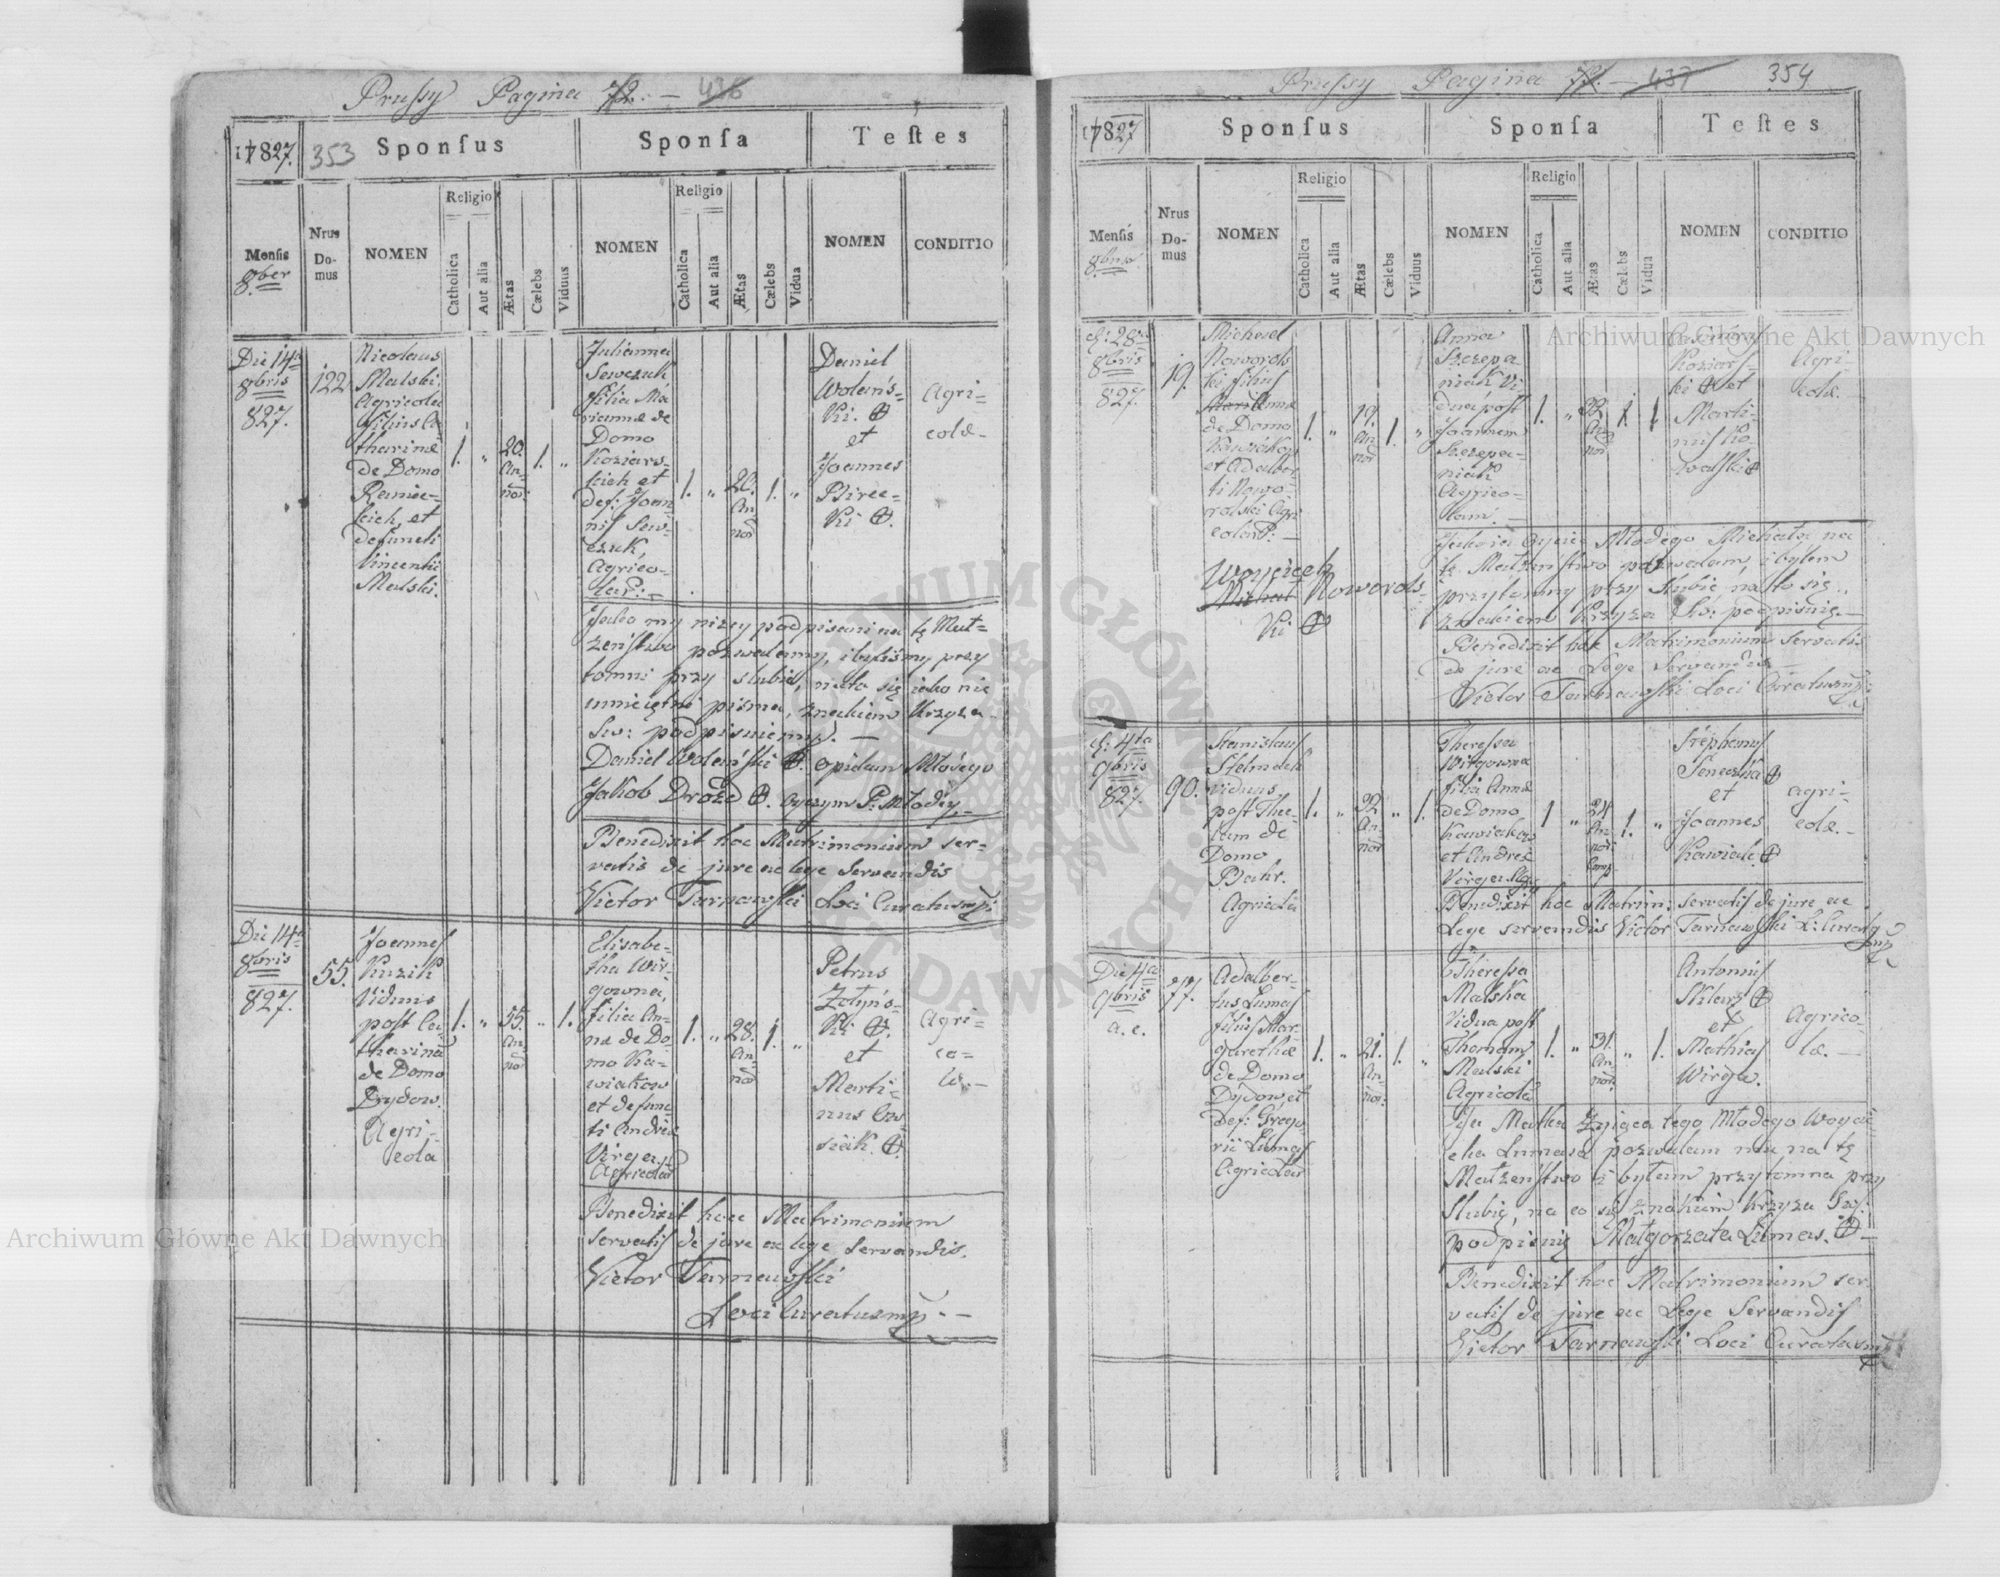 Prussy Pagina 72. — 436
17827. 353 Sponsus Sponsa Testes
Mensis 8ber
Nrus Domus
NOMEN
Religio
Catholica
Aut alia
Ætas
Cælebs
Viduus
NOMEN
Religio
Catholica
Aut alia
Ætas
Cælebs
Vidua
NOMEN
CONDITIO
Die 14a
8bris
827.
122
Nicolaus
Malski
Agricola
filius Ca
tharinæ
de Domo
Raniec-
kich, et
defuncti
Vincentii
Malski.
1. „ 20. An-
nor: 1. „
Julianna
Sewczuk
filia Ma
riannæ de
Domo
Koziars-
kich et
def: Joan-
nis Sew-
czuk,
Agrico-
lar: –
1. „ 20. An
nor 1. „
Daniel
Wolańs-
ki. ⊕
et
Joannes
Birec-
ki ⊕.
Agri-
colæ –
Jako my niżey podpisani na tę Mał-
żeństwo pozwalamy, i byliśmy przy
tomni przy slubie, na to się jako nie
umiejętni pisma, znakiem Krzyża
Sw: podpisuiemy. —
Daniel Wolański ⊕. opidun Młodego
Jakob Drozd ⊕. oyczym P: Młodey. –
Benedixit hoc Matrimonium ser-
vatis de jure ac lege servandis
Victor Tarnawski Loci Curatus mp:
Die 14a
8bris
827.
55.
Joannes
Kuzik
Viduus
post Ca
tharina
de Domo
Drydow.
Agri-
cola
1. „ 55. An-
nor „ 1.
Elisabe-
tha Wir-
gowna,
filia An-
næ de Do-
mo Ka-
wiakow
et defunc
ti Andreæ
Virga,
Agricolar
1. „ 28. An-
nor 1. „
Petrus
Zołyńs-
ki ⊕.
et
Marti-
nus
⊕.
Agri-
co-
læ. –
Benedixit hoc Matrimonium
servatis de jure ac lege servandis.
Victor Tarnawski
Loci Curatus mp. –
Prussy Pagina 73. — 437 354
17827 Sponsus Sponsa Testes
Mensis 8bris
Nrus Domus
NOMEN
Religio
Catholica
Aut alia
Ætas
Cælebs
Viduus
NOMEN
Religio
Catholica
Aut alia
Ætas
Cælebs
Vidua
NOMEN
CONDITIO
d: 28a
8bris
827.
19.
Michael
Noworols
ki filius
Mariannæ
de Domo
Kawiakow
et Adalber
ti Nowo-
rolski Agri
colar: –
1. „ 19. An
nor 1. „
Anna
Szczepa
niak Vi
dua post
Joannem
Szczepa-
niak
Agrico-
lam. –
1. „ 22 An
nor 1 1.
Koziars-
ki ⊕ et
Marti-
nus Ko-
walski ⊕
Agri-
colæ.
Jako ia oyciec Młodego Michała na
tę Małżeństwo pozwalam i byłem
przytomny przy slubie na to się
znakiem Krzyża Sw: podpisuię. –
Woyciech
Michał Noworols-
ki ⊕
Benedixit hoc Matrimonium servatis
de jure ac Lege Servandis –
Victor Tarnawski Loci Curatus mp:
d: 4ta
9bris
827.
90.
Stanislaus
Stelmach
viduus
post The-
clam de
Domo
Bahr.
Agricola
1. „ 32 An-
nor „ 1.
Theressa
Wirgowna
filia Annæ
de Domo
Kawiakow
et Andreæ
Virga Agr
1 „ 24 An-
nor 1. „
Stephanus
Seneczka ⊕
et
Joannes
Kawiak ⊕
Agri-
colæ. –
Benedixit hoc Matrim: servatis de jure ac
Lege servandis Victor Tarnawski L: Curatg
mp
Die 4a
9bris
a. c.
77.
Adalber-
tus Lumas
filius Mar-
garethæ
de Domo
Dydow, et
Def: Grego
rii Lumas
Agricolar
1. „ 21. An-
nor: 1. „
Theressa
Malska
Vidua post
Thomam
Malski
Agricola
1. „ 31. An-
nor „ 1.
Antonius
Sklarz ⊕
et
Mathias
Wirga.
Agrico-
læ. –
Ja Matka Żyjąca tego Młodego Woycie
cha Lumasa pozwalam mu na tę
Małżeństwo i byłam przytomna przy
slubię, na co się znakiem Krzyża Sw:
podpisuię Małgorzata Lumas. ⊕ –
Benedixit hoc Matrimonium ser-
vatis de jure ac Lege Servandis
Victor Tarnawski Loci Curatus mp
Archiwum Główne Akt Dawnych
Archiwum Główne Akt Dawnych